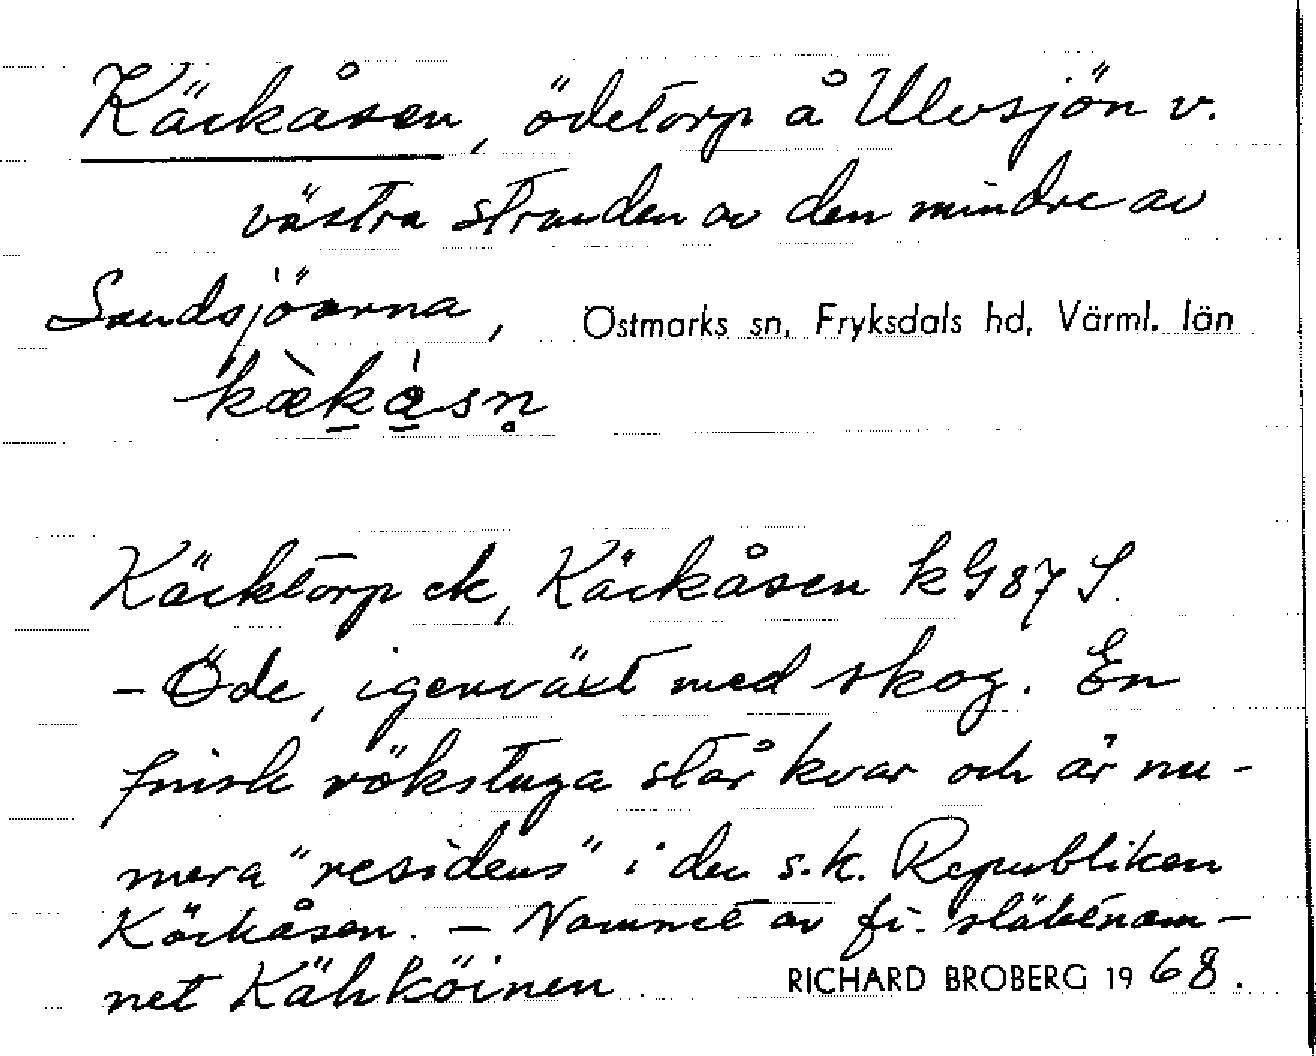 Käckåsen, ödetorp å Ulvsjön v.
västra stranden av den mindre av
Sandsjöarna, Östmarks sn, Fryksdals hd, Värml. län
kæ̀kåsn̥
Käcktorp ek, Käckåsen k G 87 S.
- Öde, igenväxt med skog. En
finsk rökstuga står kvar och är nu-
mera "residens" i den s.k. Republiken
Käckåsen. - Namnet av fi. släktnam-
net Kähköinen
RICHARD BROBERG 1968.